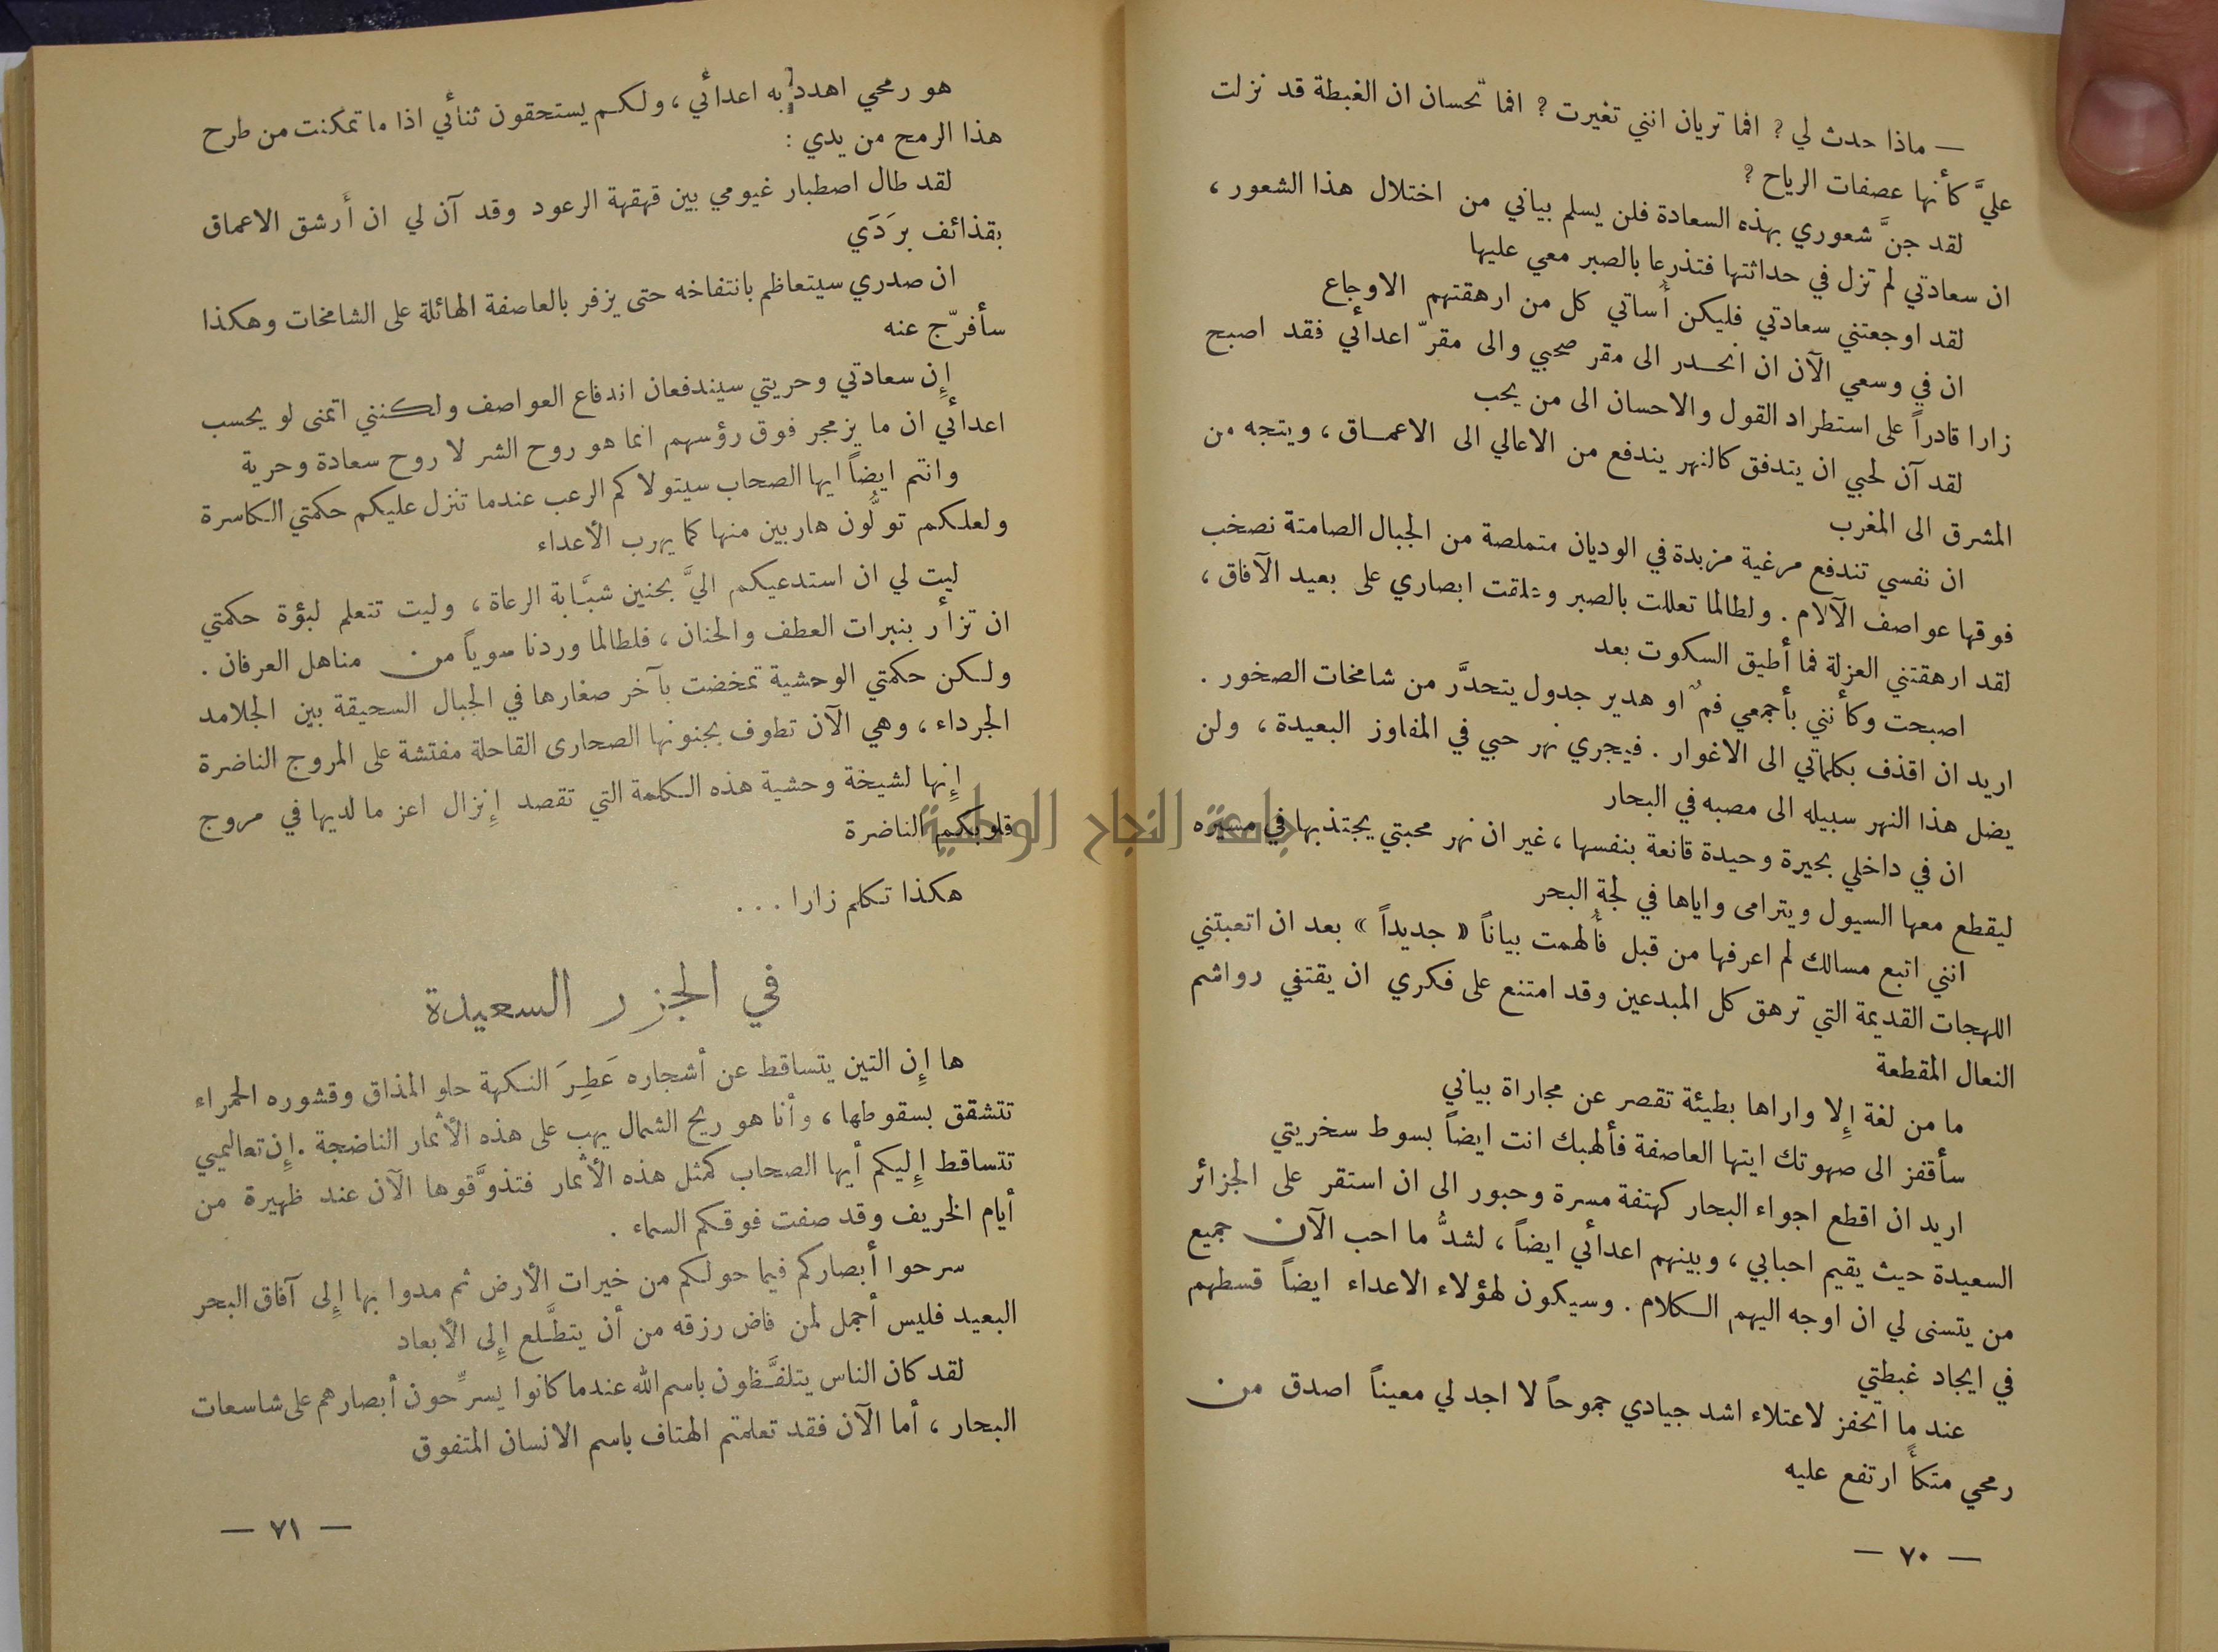 — ماذا حدث لي ? افما تريان انني تغيرت ? افما تحسان ان الغبطة قد نزلت
عليَّ كأنها عصفات الرياح ?
لقد جنَّ شعوري بهذه السعادة فلن يسلم بياني من اختلال هذا الشعور ،
ان سعادتي لم تزل في حداثتها فتذرعا بالصبر معي عليها
لقد اوجعتني سعادتي فليكن أساتي كل من ارهقتهم الاوجاع
ان في وسعي الآن ان انحدر الى مقر صحبي والى مقرّ اعدائي فقد اصبح
زارا قادراً على استطراد القول والاحسان الى من يحب
لقد آن لحبي ان يتدفق كالنهر يندفع من الاعالي الى الاعماق ، ويتجه من
المشرق الى المغرب
ان نفسي تندفع مرغية مزبدة في الوديان متملصة من الجبال الصامتة نصخب
فوقها عواصف الآلام . ولطالما تعللت بالصبر وعلقت ابصاري على بعيد الآفاق ،
لقد ارهقتني العزلة فما أطيق السكوت بعد
اصبحت وكأنني بأجمعي فمٌ او هدير جدول يتحدَّر من شامخات الصخور .
اريد ان اقذف بكلماتي الى الاغوار . فيجري نهر حبي في المفاوز البعيدة ، ولن
يضل هذا النهر سبيله الى مصبه في البحار
ان في داخلي بحيرة وحيدة قانعة بنفسها ، غير ان نهر محبتي يجتذبها في مسيره
ليقطع معها السيول ويترامى واياها في لجة البحر
انني اتبع مسالك لم اعرفها من قبل فألهمت بياناً « جديداً » بعد ان اتعبتني
اللهجات القديمة التي ترهق كل المبدعين وقد امتنع على فكري ان يقتفي رواشم
النعال المقطعة
ما من لغة إلا واراها بطيئة تقصر عن مجاراة بياني
سأقفز الى صهوتك ايتها العاصفة فألهبك انت ايضاً بسوط سخريتي
اريد ان اقطع اجواء البحار كهتفة مسرة وحبور الى ان استقر على الجزائر
السعيدة حيث يقيم احبابي ، وبينهم اعدائي ايضاً ، لشدُّ ما احب الآن جميع
من يتسنى لي ان اوجه اليهم الكلام . وسيكون لهؤلاء الاعداء ايضاً قسطهم
في ايجاد غبطتي
عند ما اتحفز لاعتلاء اشد جيادي جموحاً لا اجد لي معيناً اصدق من
رمحي متكأً ارتفع عليه
— ٧٠ —
هو رمحي اهدد به اعدائي ، ولكم يستحقون ثنائي اذا ما تمكنت من طرح
هذا الرمح من يدي :
لقد طال اصطبار غيومي بين قهقهة الرعود وقد آن لي ان أرشق الاعماق
بقذائف برَدَي
ان صدري سيتعاظم بانتفاخه حتى يزفر بالعاصفة الهائلة على الشامخات وهكذا
سأفرّج عنه
إن سعادتي وحريتي سيندفعان اندفاع العواصف ولكنني اتمنى لو يحسب
اعدائي ان ما يزمجر فوق رؤسهم انما هو روح الشر لا روح سعادة وحرية
وانتم ايضاً ايها الصحاب سيتولاكم الرعب عندما تنزل عليكم حكمتي الكاسرة
ولعلكم تولُّون هاربين منها كما يهرب الأعداء
ليت لي ان استدعيكم اليَّ بحنين شبَّابة الرعاة ، وليت تتعلم لبؤة حكمتي
ان تزأر بنبرات العطف والحنان ، فلطالما وردنا سوياً من مناهل العرفان .
ولكن حكمتي الوحشية تمخضت بآخر صغارها في الجبال السحيقة بين الجلامد
الجرداء ، وهي الآن تطوف بجنونها الصحارى القاحلة مفتشة على المروج الناضرة
إنها لشيخة وحشية هذه الكلمة التي تقصد إنزال اعز ما لديها في مروج
قلوبكم الناضرة
جامعة النجاح الوطنية
هكذا تكلم زارا . . .
في الجزر السعيدة
ها إن التين يتساقط عن أشجاره عَطِرَ النكهة حلو المذاق وقشوره الحمراء
تتشقق بسقوطها ، وأنا هو ريح الشمال يهب على هذه الأثمار الناضجة . إن تعاليمي
تتساقط إليكم أيها الصحاب كمثل هذه الأثمار فتذوَّقوها الآن عند ظهيرة من
أيام الخريف وقد صفت فوقكم السماء .
سرحوا أبصاركم فيما حولكم من خيرات الأرض ثم مدوا بها إلى آفاق البحر
البعيد فليس أجمل لمن فاض رزقه من أن يتطَّلع إلى الأبعاد
لقد كان الناس يتلفَّظون باسم الله عندما كانوا يسرِّحون أبصارهم على شاسعات
البحار ، أما الآن فقد تعلمتم الهتاف باسم الانسان المتفوق
— ٧١ —